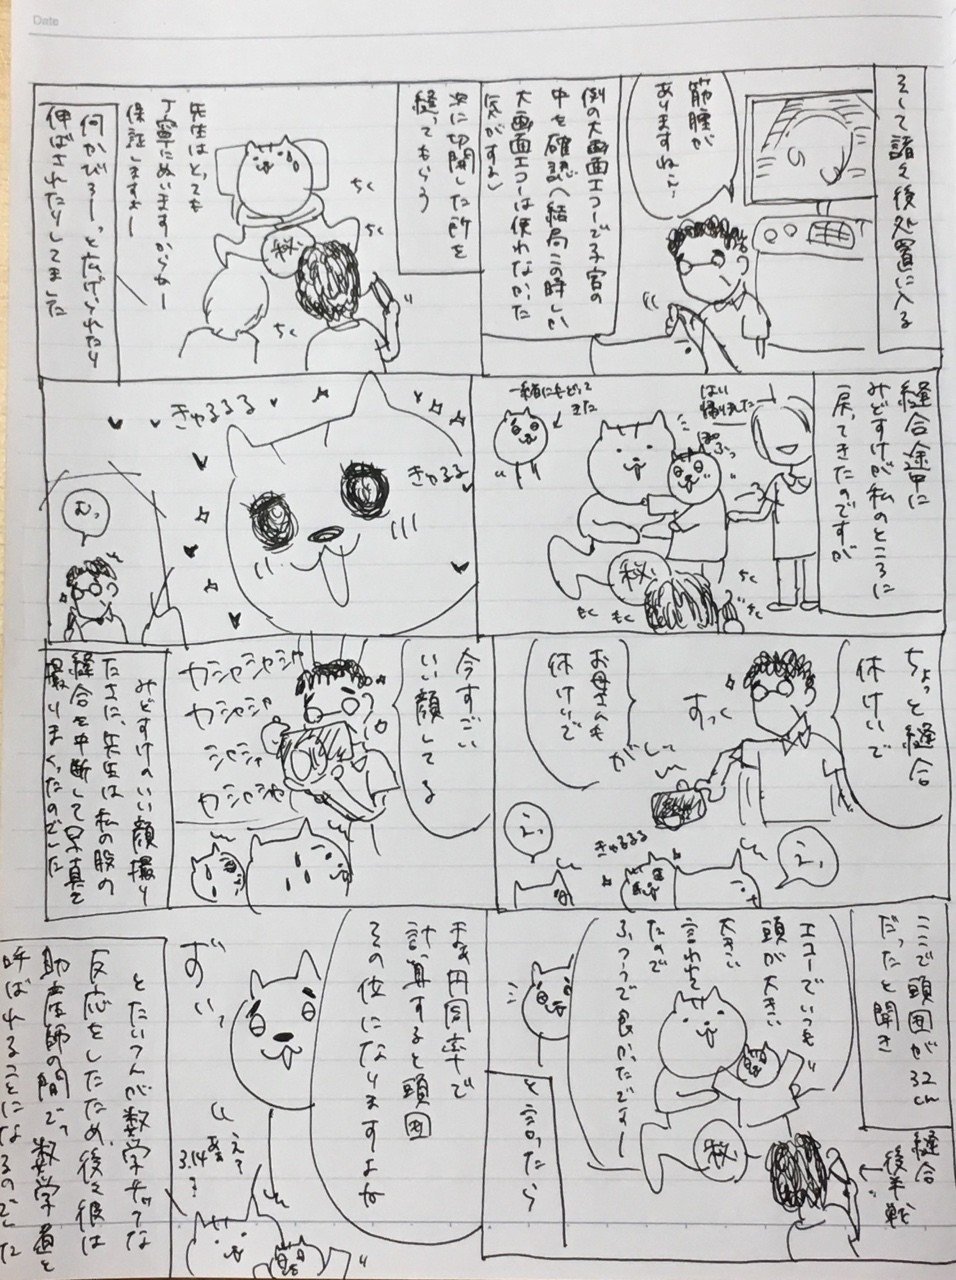 Date
そして諸々後処置に入る
筋腫が
ありますねぇ…
例の大画面エコーで子宮の
中を確認(結局この時しか
大画面エコーは使わなかった
気がする)
次に切開した所を
縫ってもらう
先生はとっても
丁寧にぬいますからねー
保証しますよー
ちく
ちく
ちく
秘
何かびろーっと広げられたり
伸ばされたりしてました
縫合途中に
みどすけが私のところに
戻ってきたのですが
はい
帰りました
一緒にもどって
きた
秘
ちく
もく
もく
もく
きゅるるる
きゅるる
むっ
ちょっと縫合
休けいで
すっく
お母さんも
休けいで
がしぃ
えっ
えっ
きゅるるる
今すごい
いい顔してる
カシャシャシャ
カシャシャ
シャシャ
カシャシャ
みどすけのいい顔撮り
たさに、先生は私の股の
縫合を中断して写真を
撮りまくったのでした
ここで頭囲が32cm
だったと聞き
縫合
後半戦
エコーでいつも
頭が大きい
大きい
言われて
たので
ふつうで良かったですー
秘
と言ったら
まぁ円周率で
計算すると頭囲
その位になりますよね
ずいっ
えっ
あぁ
3.14…?
とたいてんが数学チックな
反応をしたため、後々彼は
助産師の間で「数学者」と
呼ばれることになるのでした